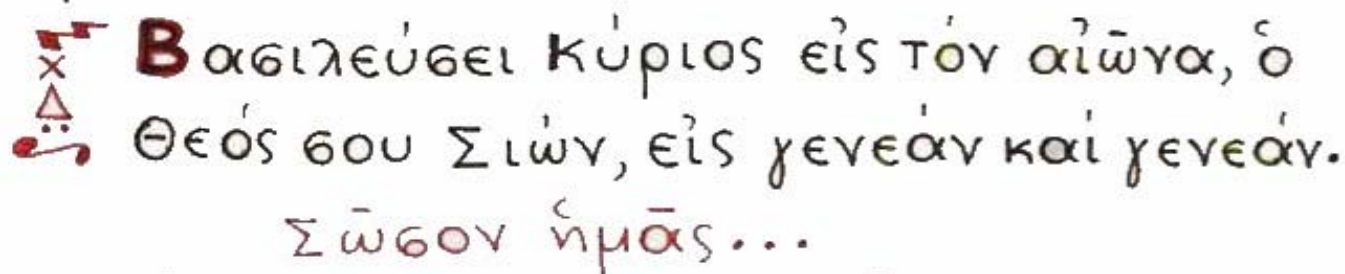 Βασιλεύσει Κύριος εἰς τόν αἰῶνα, ὁ
Θεός σου Σιών, εἰς γενεάν καί γενεάν.
Σῶσον ἡμᾶς...